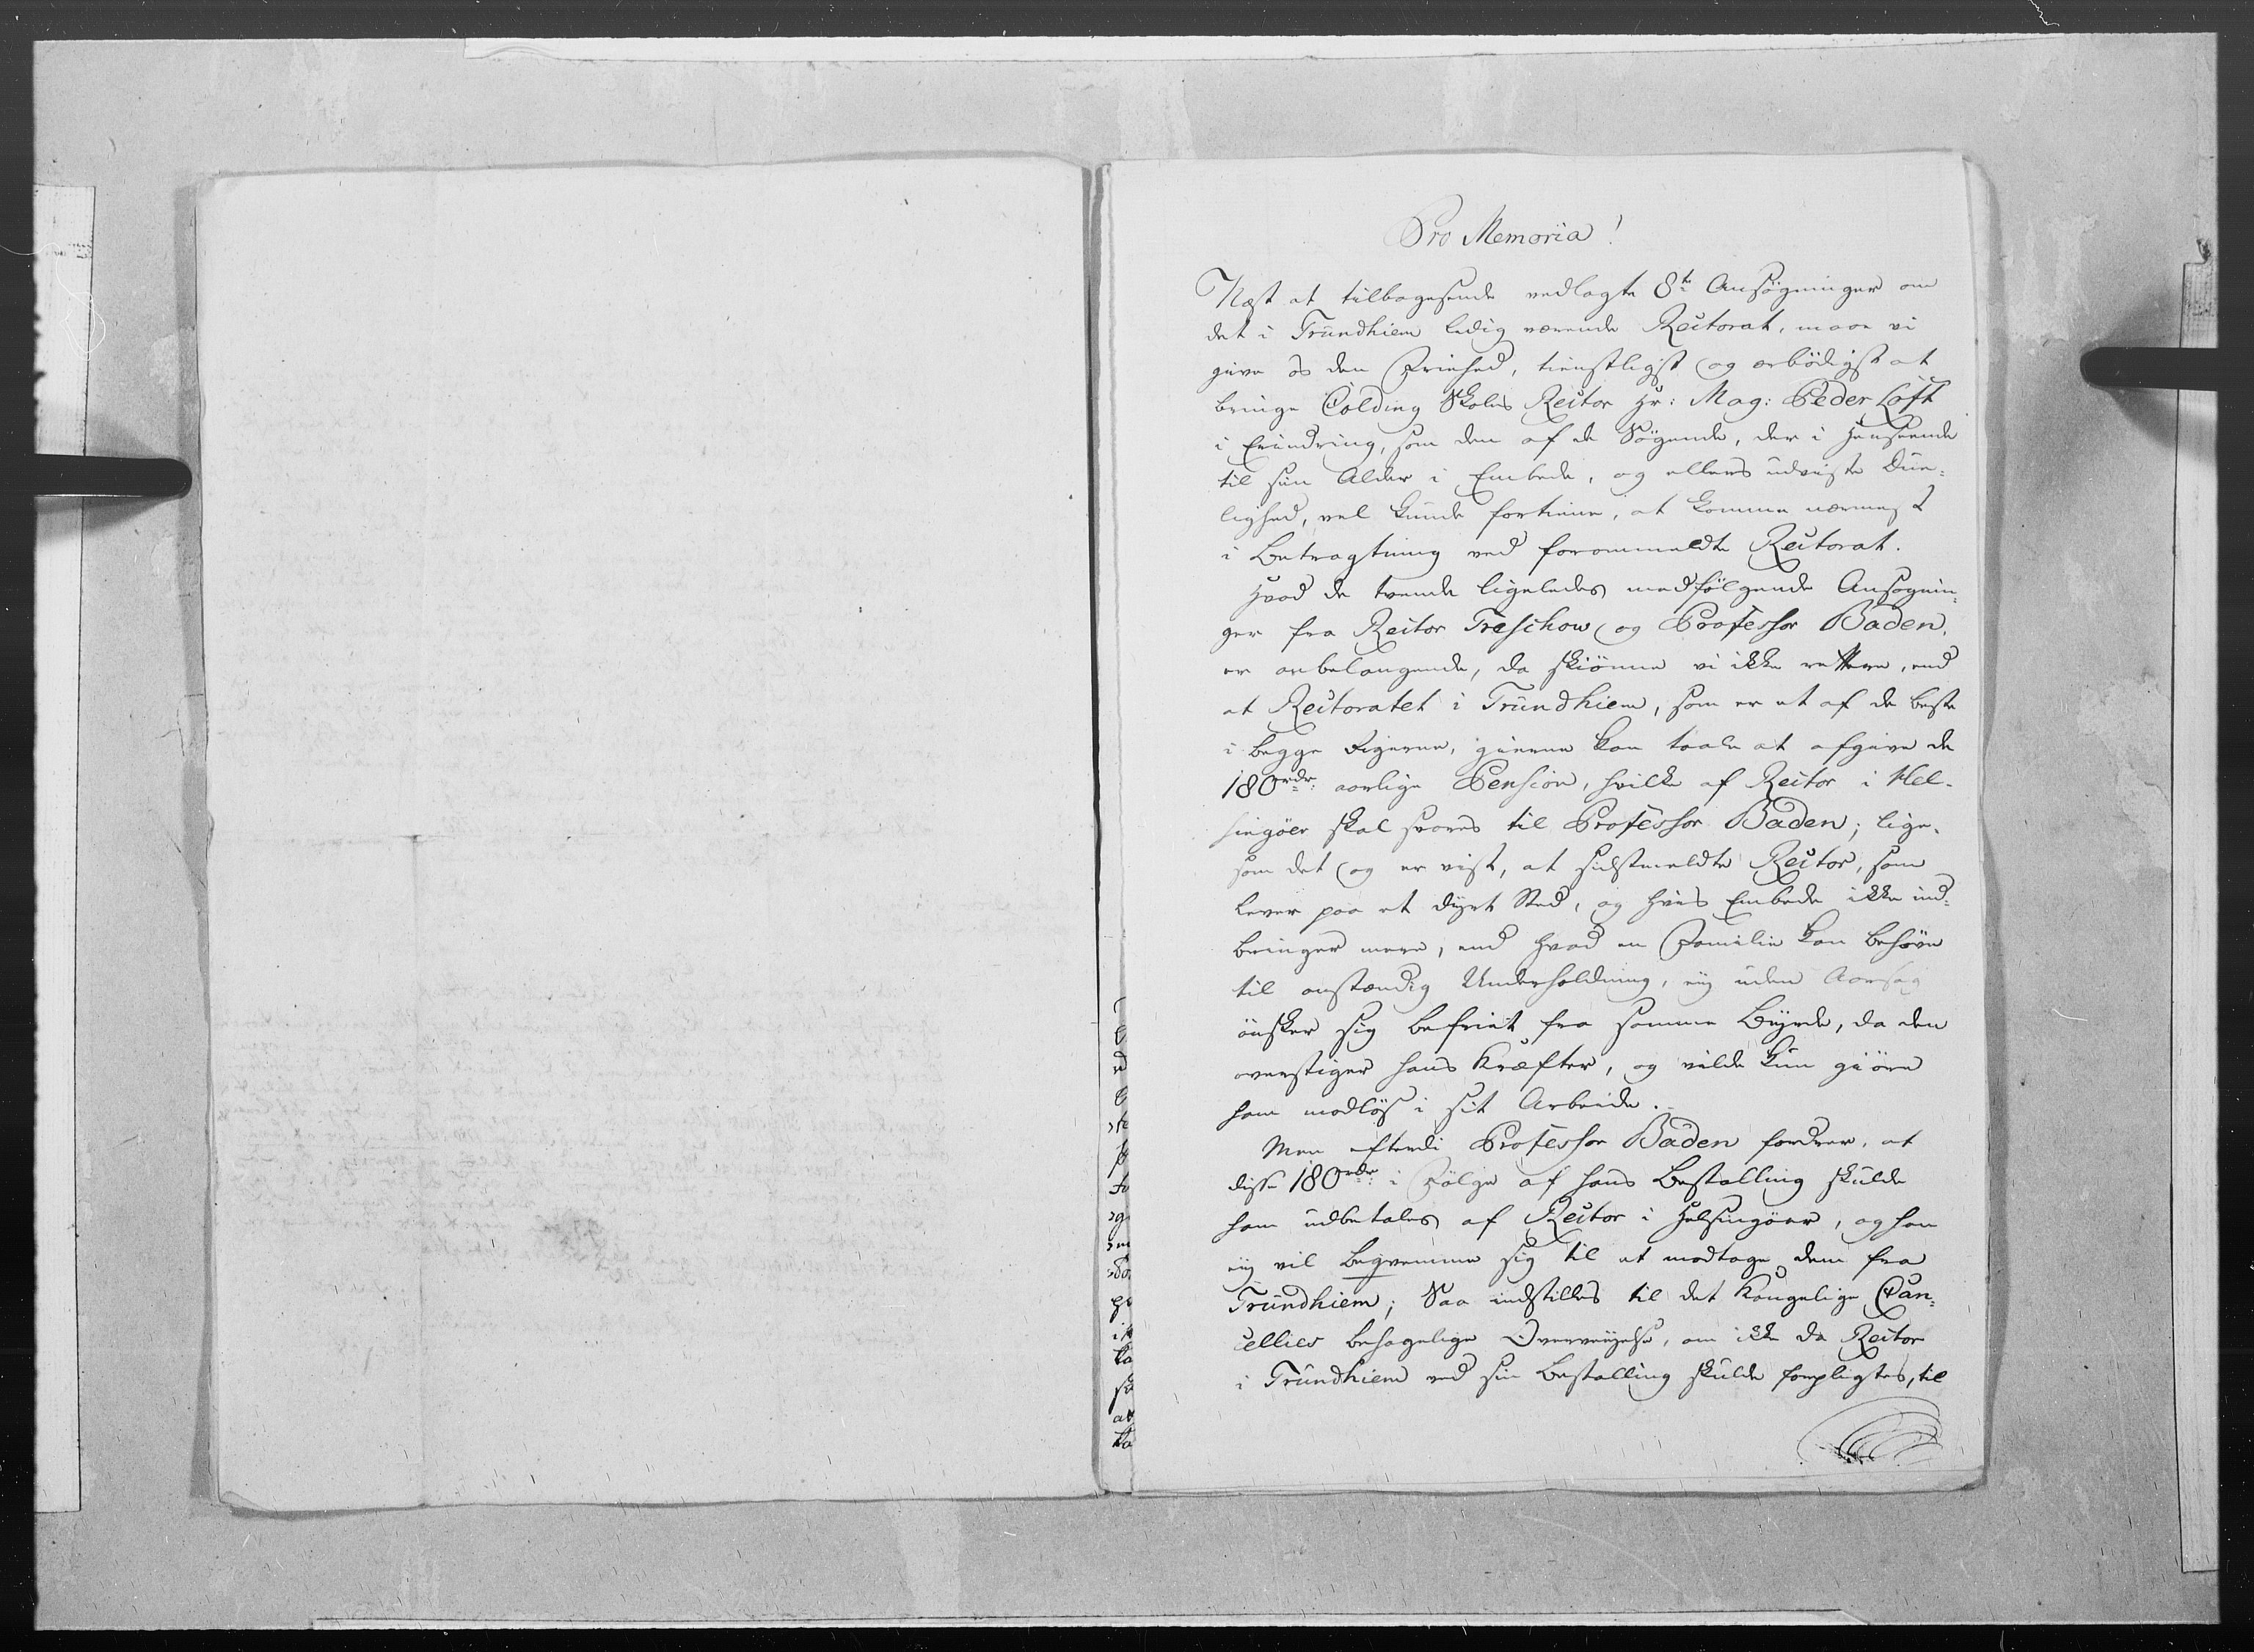 Pro Memoria!
Næst at tilbagesende vedlagte 8te Ansøgninger om
det i Trundhiem ledig værende Rectorat, maae vi
give os den Friehed, tienstligst og ærbødigst at
bringe Colding Skoles Rector Hr: Mag: Peder Loft
i Erindring, som den af de Søgende, der i Henseende
til sin Alder i Embede, og ellers udviste Due=
lighed, vel kunde fortiene, at komme nærmest
i Betragtning ved forommeldte Rectorat.
Hvad de tvende ligeledes medfølgende Ansøgnin=
ger fra Rector Treschow og Professor Baden,
er anbelangende, da skiønne vi ikke rettere, end
at Rectoratet i Trundhiem, som er et af de beste
i begge Rigerne, gierne kan taale at afgive de
180rdr: aarlige Pension, hvilke af Rector i Hel-
singöer skal svares til Professor Baden; lige-
som det og er vist, at sidstmeldte Rector, som
lever paa et dyrt Sted, og hvis Embede ikke ind=
bringer mere, end hvad en Familie kan behøve
til anstændig Underholdning, ey uden Aarsag
ønsker sig befriet fra samme Byrde, da den
overstiger hans Kræfter, og vilde kun giøre
ham modløs i sit Arbeide.
Men efterdi Professor Baden fordrer, at
disse 180rdr: i Følge af hans Bestalling skulde
ham udbetales af Rector i Helsingöer, og han
ey vil beqvemme sig til at modtage dem fra
Trundhiem; Saa indstilles til det Kongelige Can=
cellies behagelige Overveyelse, om ikke da Rector
i Trundhiem ved sin Bestalling skulde forpligtes, til